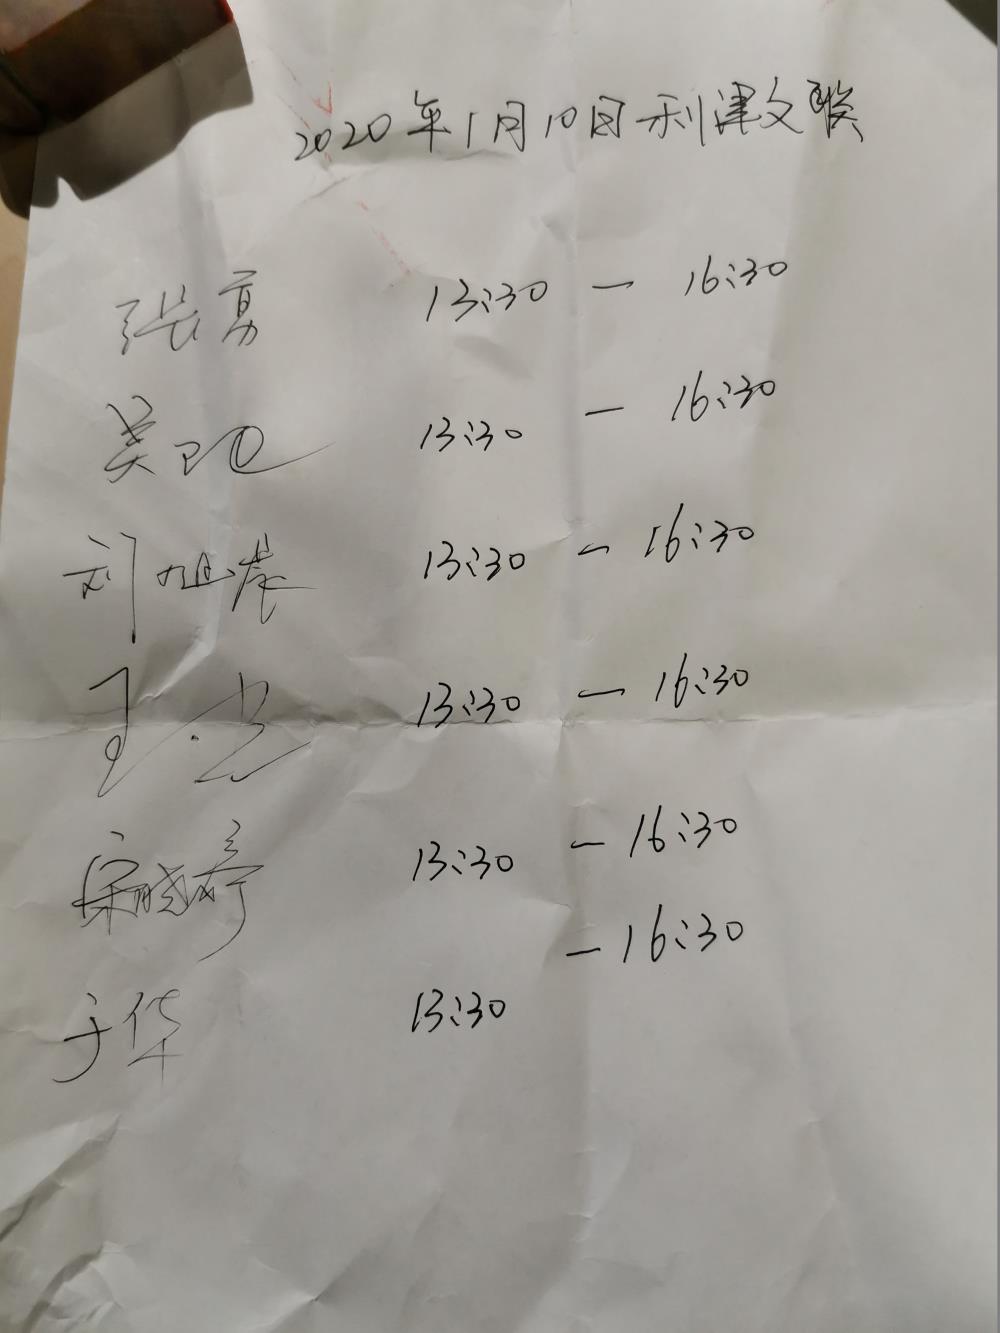 2020年1月10日利津文联
张勇 13:30 — 16:30
吴 13:30 — 16:30
刘旭岸 13:30 — 16:30
王 13:30 — 16:30
宋晓琦 13:30 — 16:30
于华 13:30 — 16:30